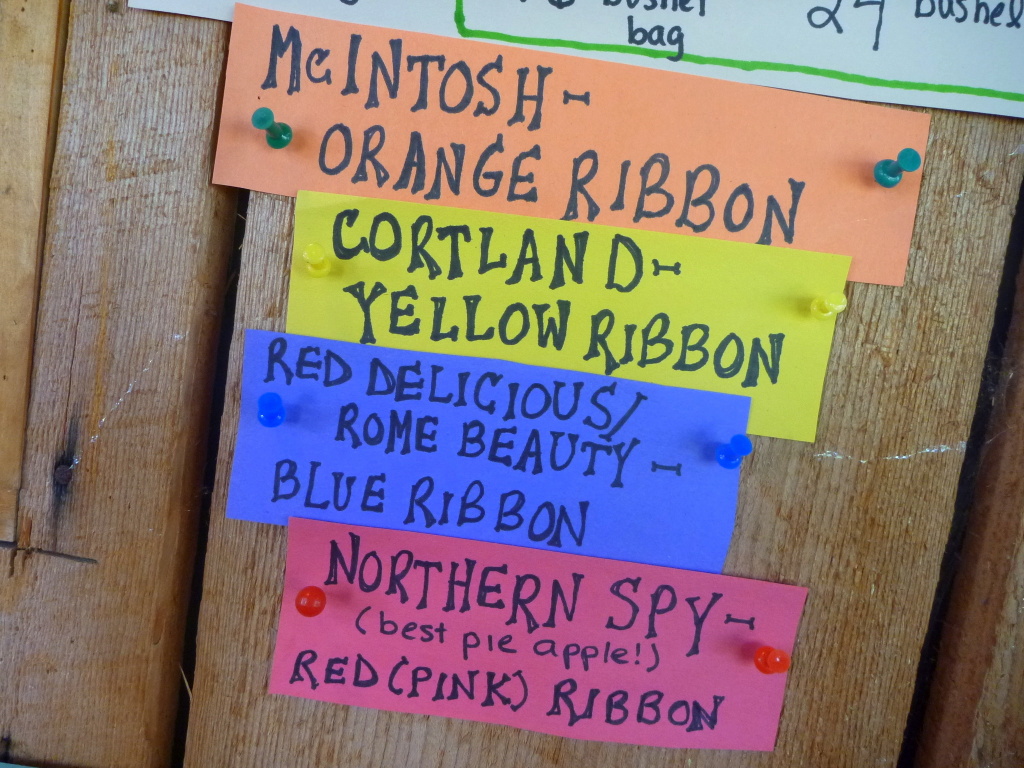 bushel
bag
24 bushel
McINTOSH-
ORANGE RIBBON
CORTLAND-
YELLOW RIBBON
RED DELICIOUS/
ROME BEAUTY-
BLUE RIBBON
NORTHERN SPY-
(best pie apple!)
RED(PINK) RIBBON